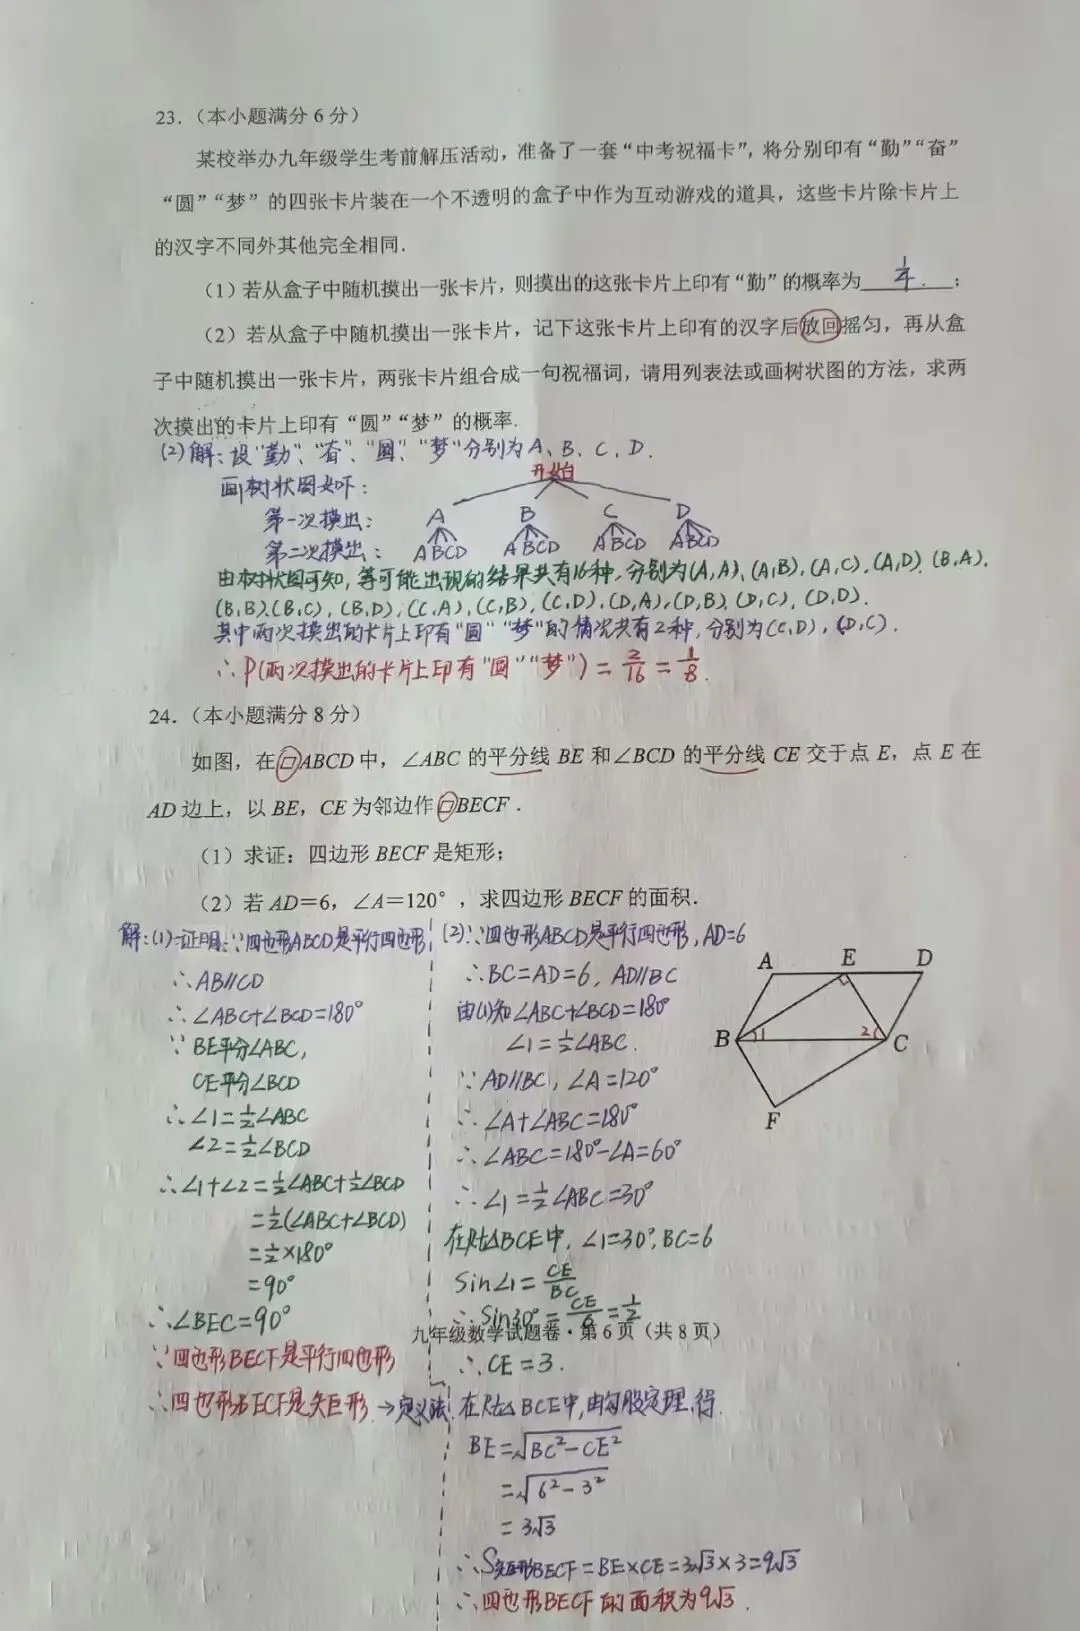 23.（本小题满分6分）
某校举办九年级学生考前解压活动，准备了一套“中考祝福卡”，将分别印有“勤”“奋”
“圆”“梦”的四张卡片装在一个不透明的盒子中作为互动游戏的道具，这些卡片除卡片上
的汉字不同外其他完全相同.
（1）若从盒子中随机摸出一张卡片，则摸出的这张卡片上印有“勤”的概率为 1/4 ；
（2）若从盒子中随机摸出一张卡片，记下这张卡片上印有的汉字后放回摇匀，再从盒
子中随机摸出一张卡片，两张卡片组合成一句祝福词，请用列表法或画树状图的方法，求两
次摸出的卡片上印有“圆”“梦”的概率.
(2)解：设“勤”、“奋”、“圆”、“梦”分别为A、B、C、D.
开始
画树状图如下：
第一次摸出： A B C D
第二次摸出： ABCD ABCD ABCD ABCD
由树状图可知，等可能出现的结果共有16种，分别为(A,A)、(A,B)、(A,C)、(A,D)、(B,A)、
(B,B)、(B,C)、(B,D)、(C,A)、(C,B)、(C,D)、(D,A)、(D,B)、(D,C)、(D,D).
其中两次摸出的卡片上印有“圆”“梦”的情况共有2种，分别为(C,D)，(D,C).
∴P(两次摸出的卡片上印有“圆”“梦”)=2/16=1/8.
24.（本小题满分8分）
如图，在▱ABCD中，∠ABC的平分线BE和∠BCD的平分线CE交于点E，点E在
AD边上，以BE，CE为邻边作▱BECF.
（1）求证：四边形BECF是矩形；
（2）若AD=6，∠A=120°，求四边形BECF的面积.
解：(1)证明：∵四边形ABCD是平行四边形
∴AB//CD
∴∠ABC+∠BCD=180°
∵BE平分∠ABC，
CE平分∠BCD
∴∠1=½∠ABC
∠2=½∠BCD
∴∠1+∠2=½∠ABC+½∠BCD
=½(∠ABC+∠BCD)
=½×180°
=90°
∴∠BEC=90°
∵四边形BECF是平行四边形
∴四边形BECF是矩形→定义法.
(2)∵四边形ABCD是平行四边形，AD=6
∴BC=AD=6，AD//BC
由(1)知∠ABC+∠BCD=180°
∠1=½∠ABC.
∵AD//BC，∠A=120°
∴∠A+∠ABC=180°
∴∠ABC=180°-∠A=60°
∴∠1=½∠ABC=30°
在Rt△BCE中，∠1=30°，BC=6
Sin∠1=CE/BC
∴Sin30°=CE/6=1/2
∴CE=3.
在Rt△BCE中，由勾股定理，得.
BE=√(BC²-CE²)
=√(6²-3²)
=3√3
∴S矩形BECF=BE×CE=3√3×3=9√3
∴四边形BECF的面积为9√3.
A E D
B 1 2 C
F
九年级数学试题卷·第6页（共8页）